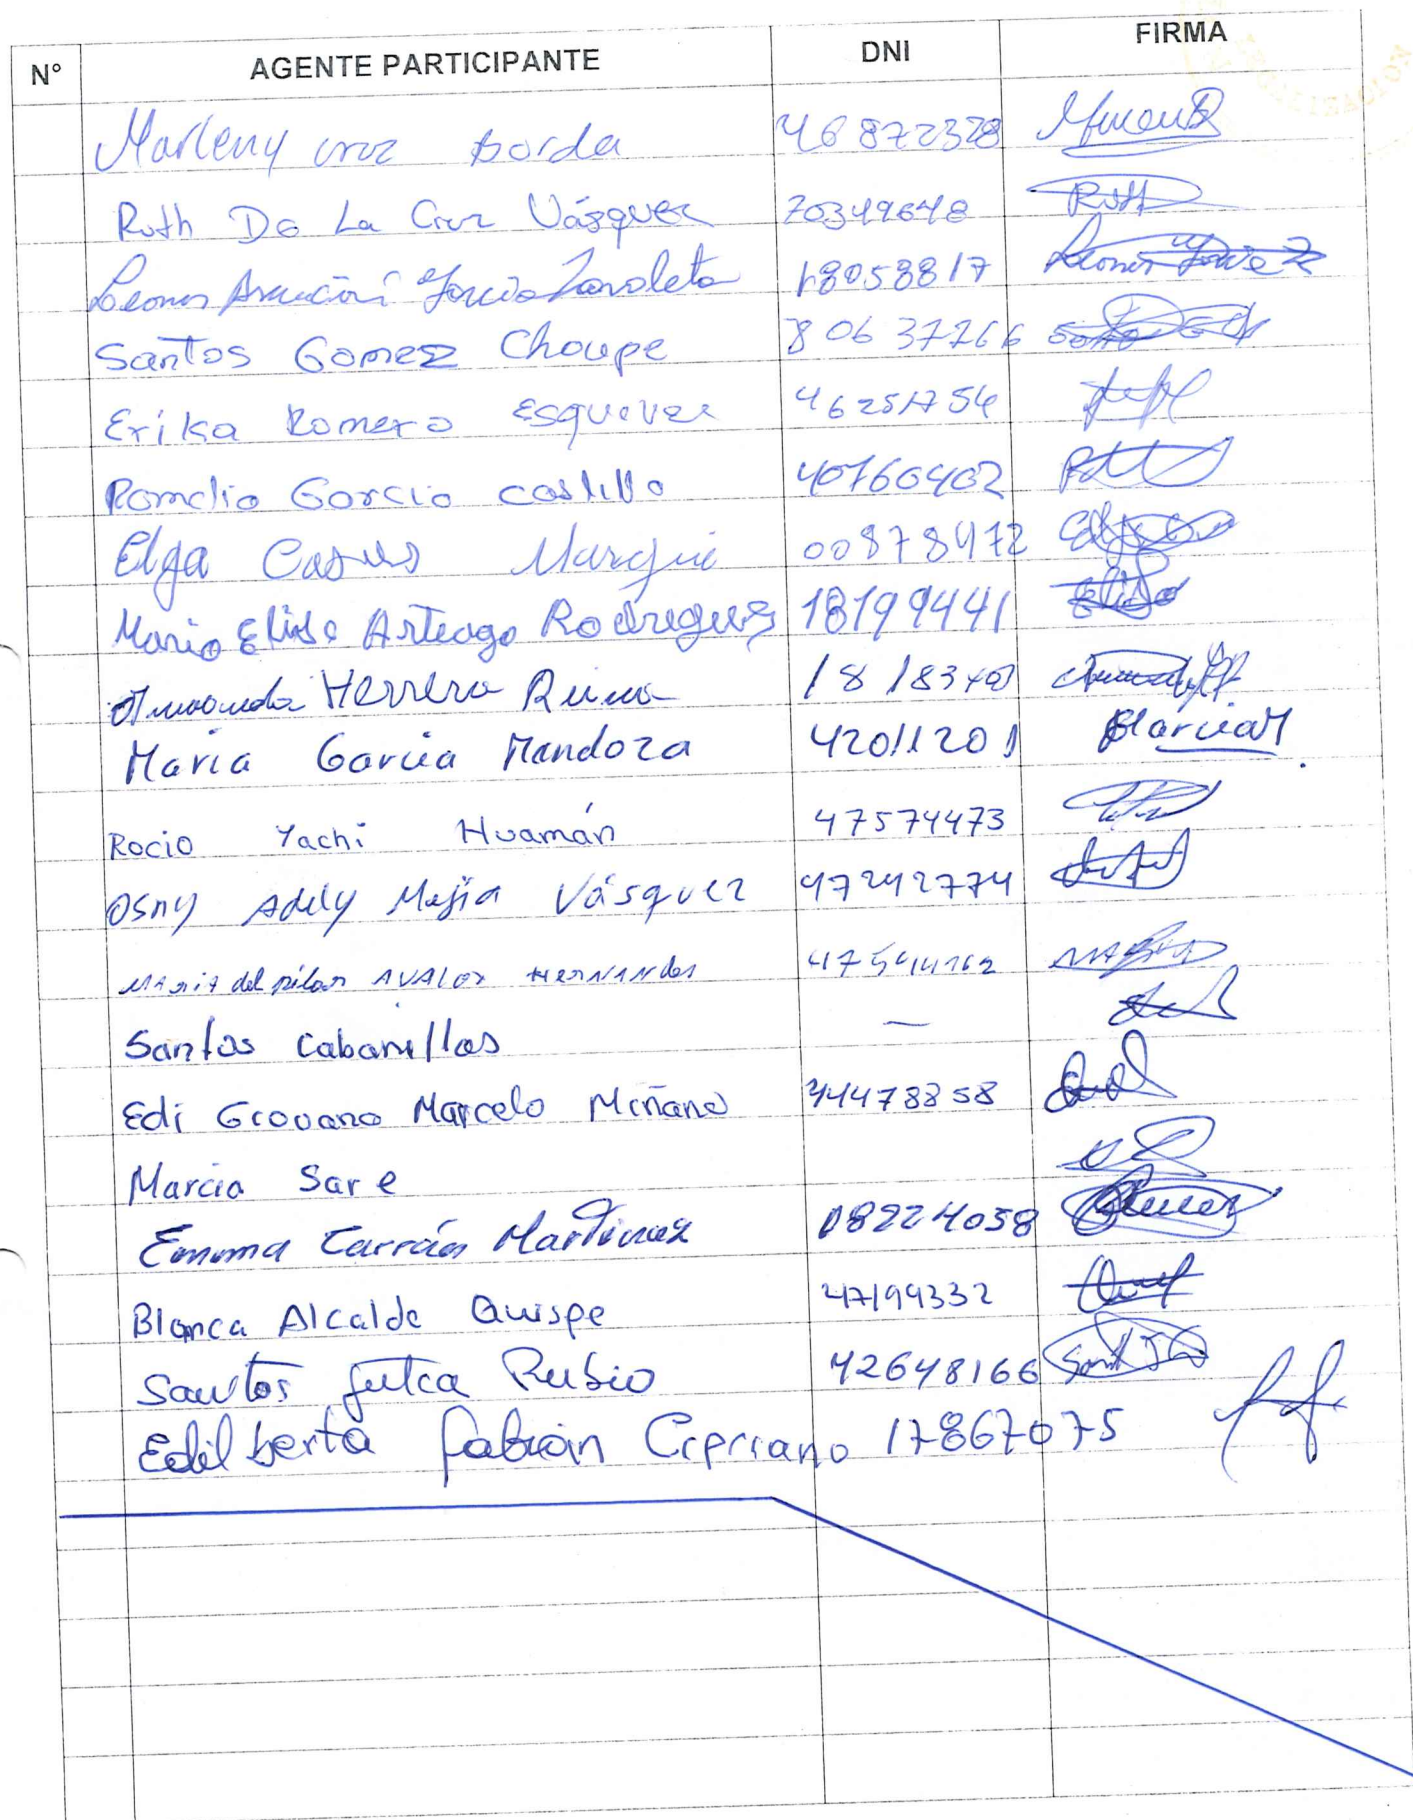 N° AGENTE PARTICIPANTE DNI FIRMA
Marleny cruz Borda 46872328
Ruth De La Cruz Vásquez 70349648 Ruth
Leonor García Zavaleta 18058817 Leonor
Santos Gomez Choupe 80637266
Erika Romero Esquivez 46251754
Romelio Garcia castillo 40760402
Elga Casus 00878472
Maria Elisa Arteaga Rodreguez 18199441 Elisa
Herrera 18183403
Maria Garcia Mendoza 42011201 MarciaM
Rocio Yachi Huamán 47574473
Osny Adely Mejia Vásquez 47242774
Maria del pilar AVALOS HERNANdes 47544162
Santos Cabanillas —
Edi Giovana Marcelo Miñano 44478858
Marcia Sare
Emma Carrión Martinez 18224058
Blanca Alcalde Quispe 47199332
Santos Julca Rubio 42648166
Edilberta fabián Cipriano 17867075